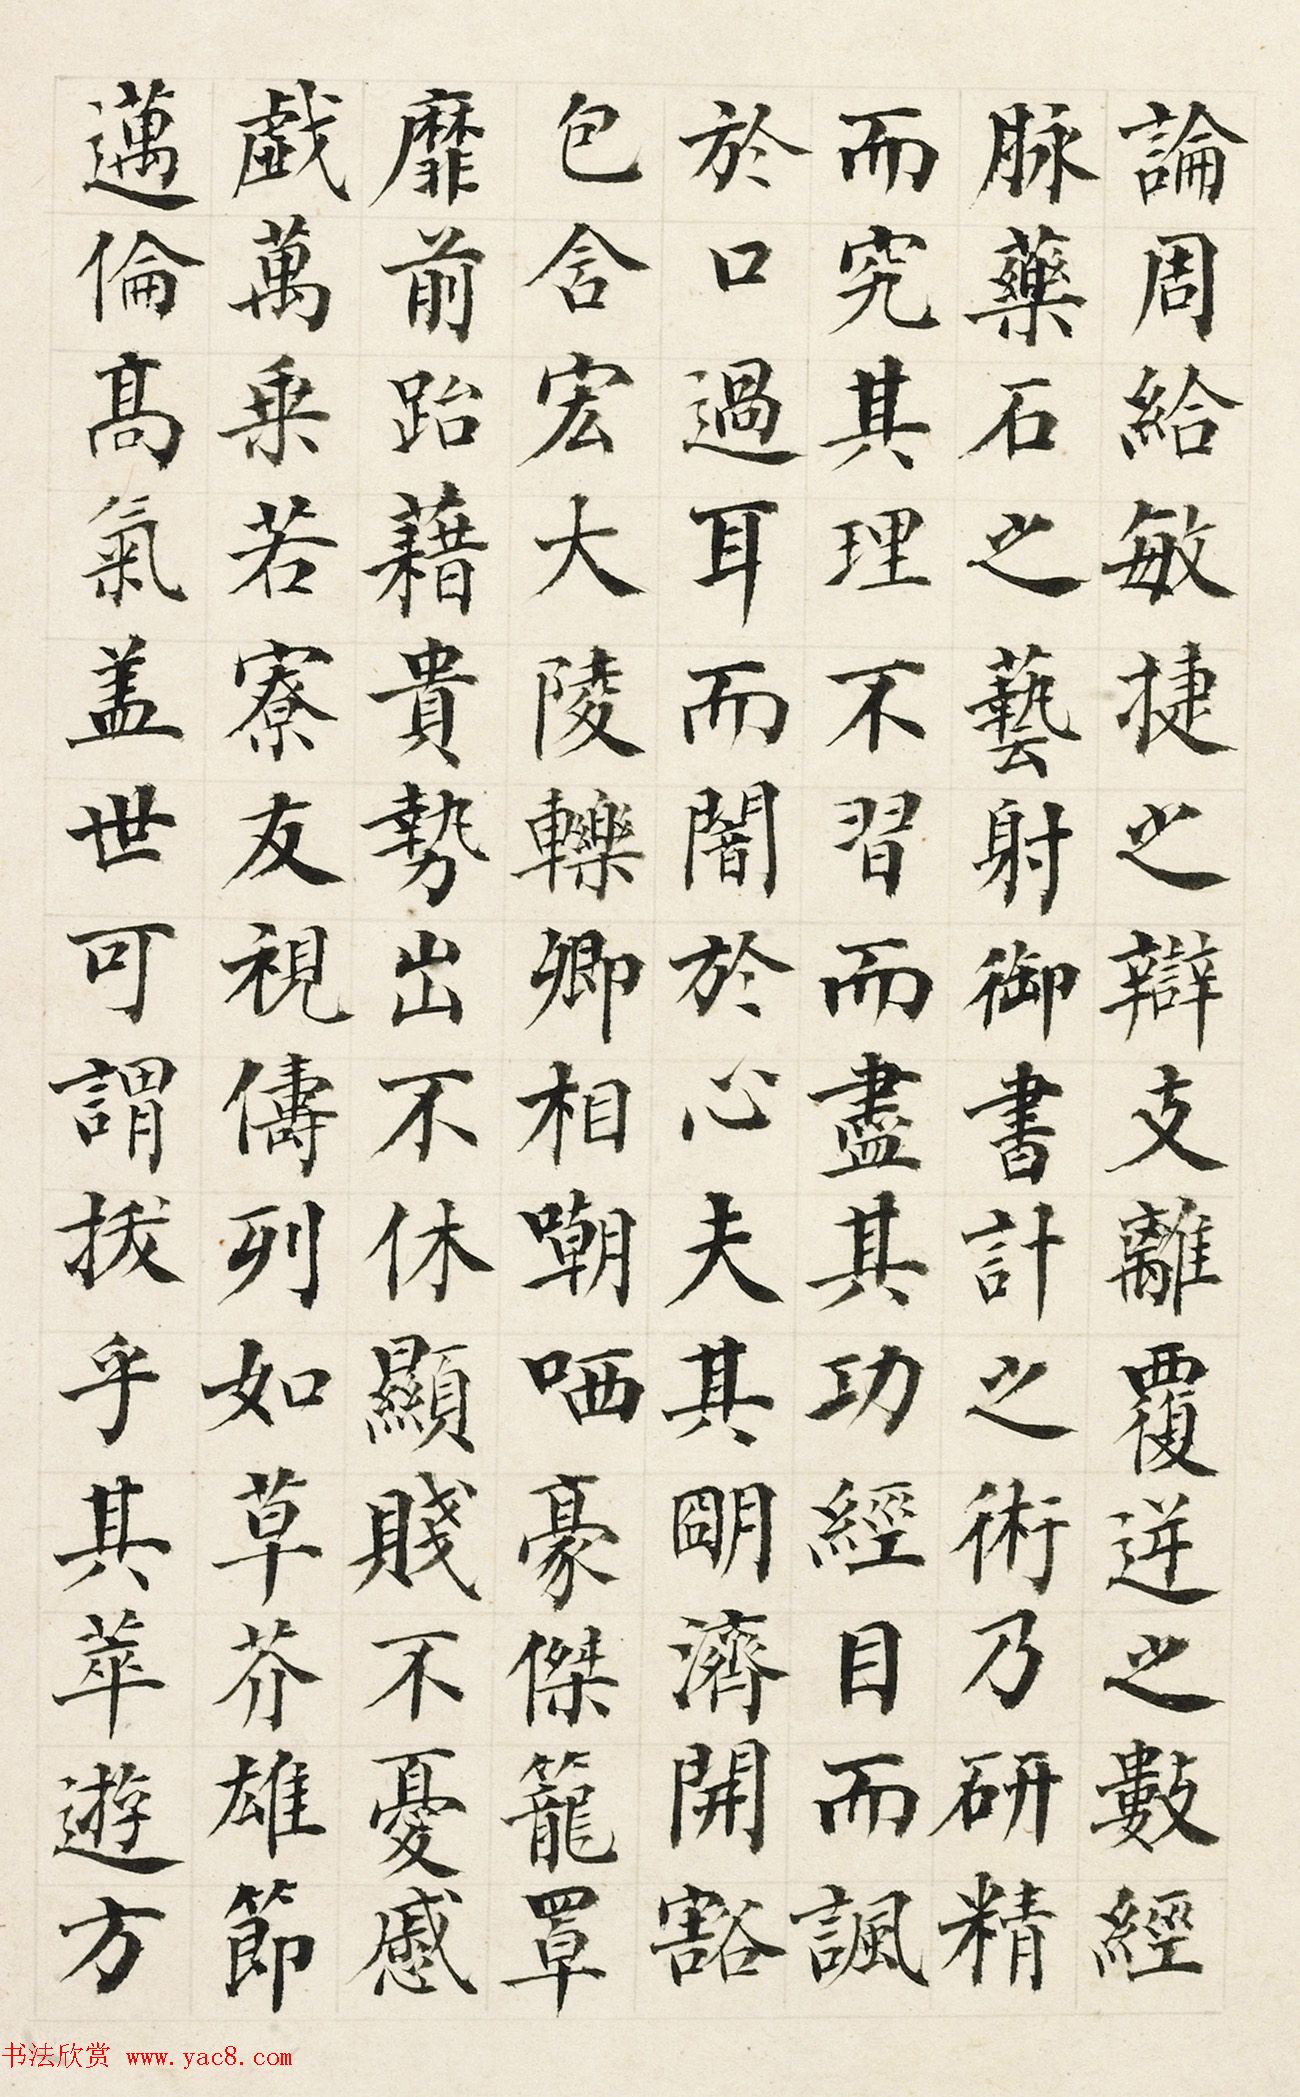 論周給敏捷之辯支離覆逆之數經
脉藥石之藝射御書計之術乃研精
而究其理不習而盡其功經目而諷
於口過耳而闇於心夫其明濟開豁
包含宏大陵轢卿相嘲哂豪傑籠罩
靡前跆藉貴勢出不休顯賤不憂慼
戯萬乗若寮友視儔列如草芥雄節
邁倫髙氣盖世可謂拔乎其萃遊方
书法欣赏 www.yac8.com